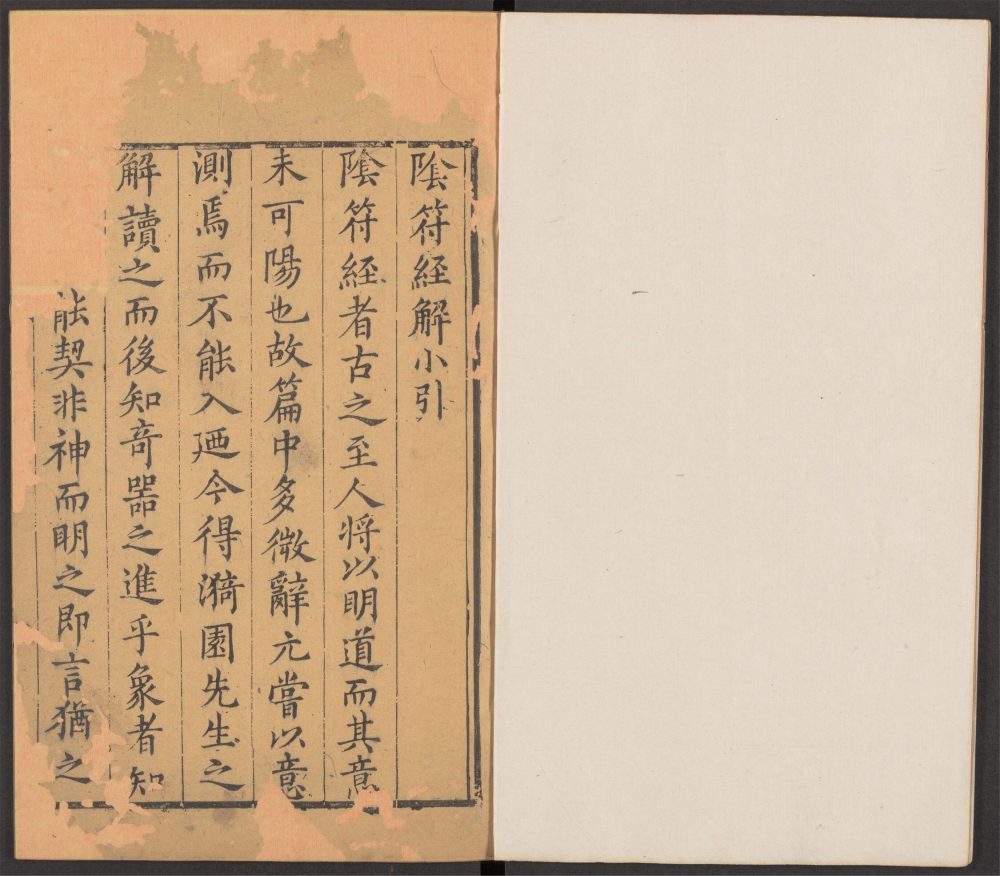 陰符経解小引
陰符経者古之至人将以明道而其意
未可陽也故篇中多微辭亢嘗以意
測焉而不能入廼今得漪園先生之
解讀之而後知竒噐之進乎象者知
能契非神而明之即言猶之